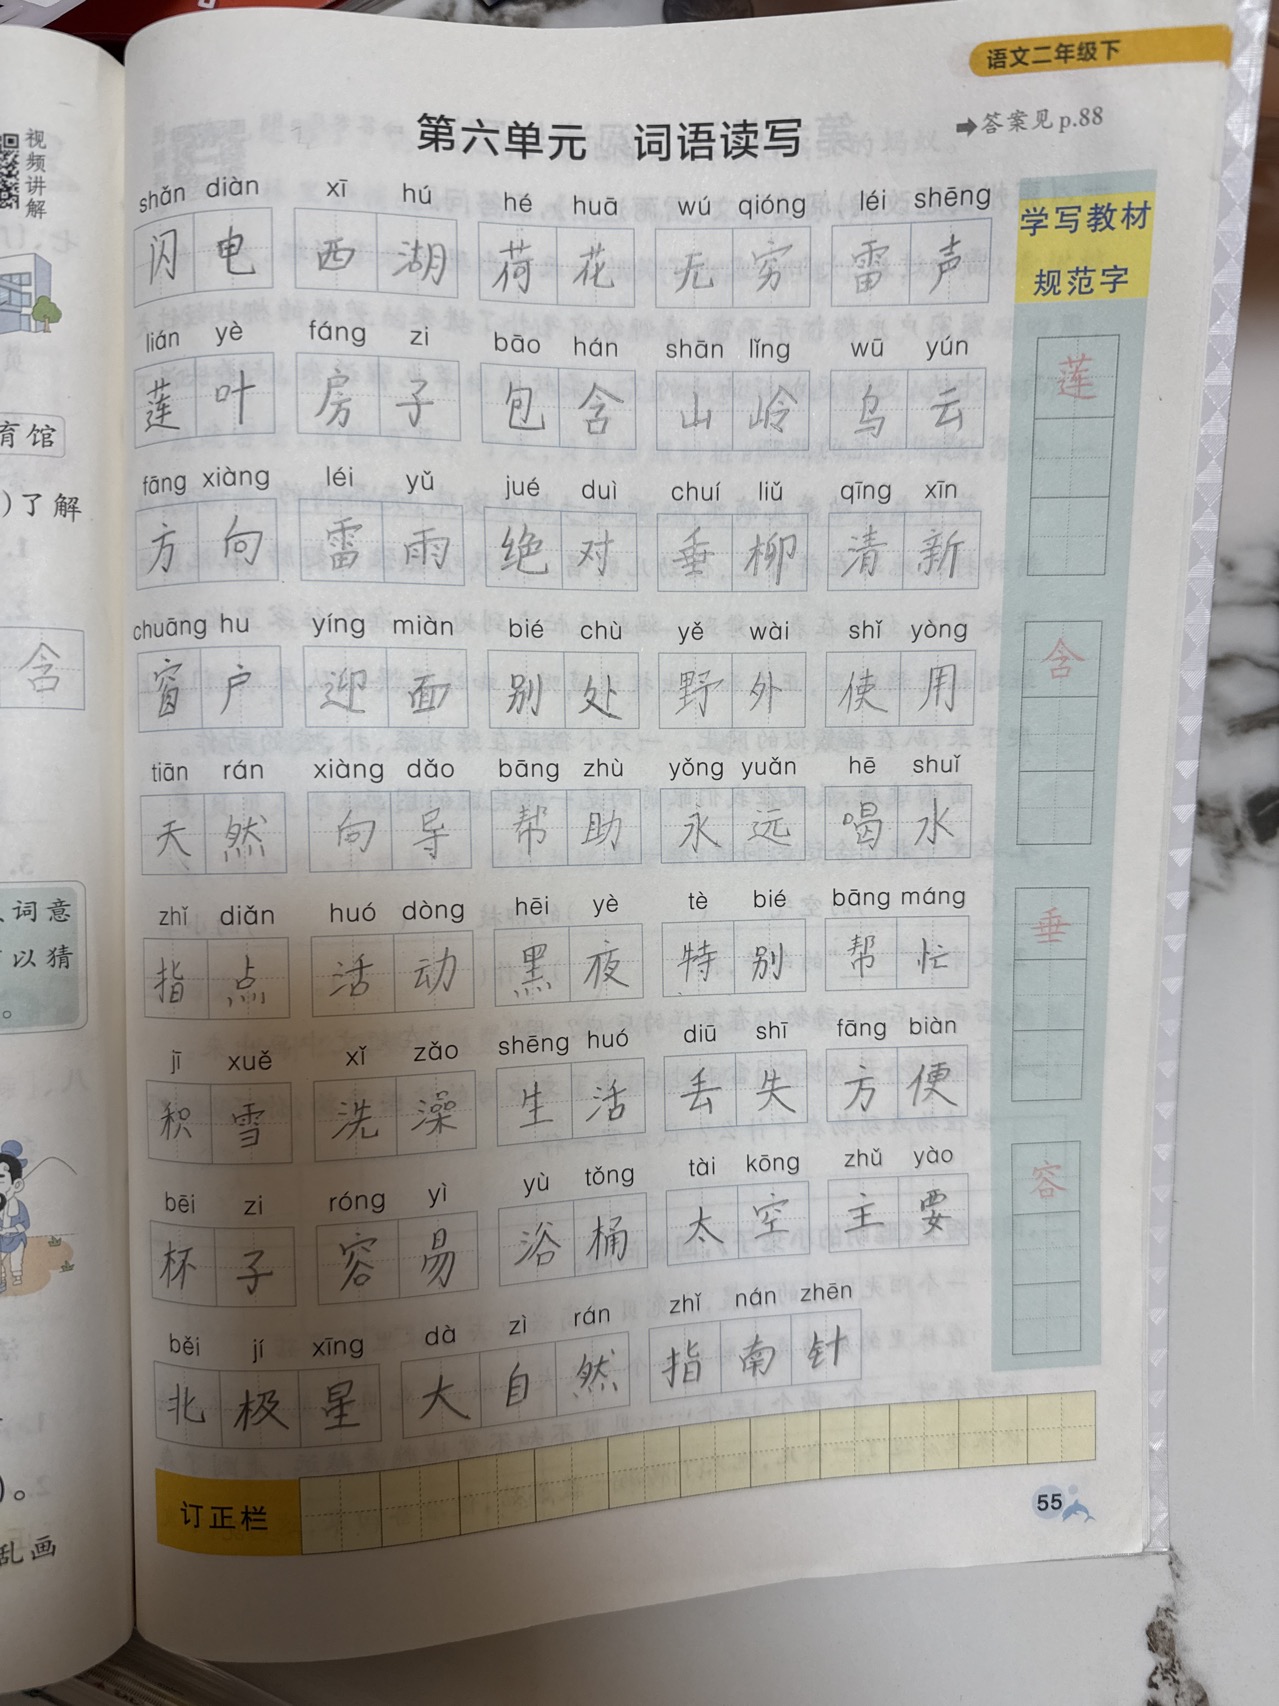 语文二年级下
第六单元 词语读写
➡答案见 p.88
视频讲解
shǎn diàn xī hú hé huā wú qióng léi shēng
闪电 西湖 荷花 无穷 雷声
学写教材
规范字
lián yè fáng zi bāo hán shān lǐng wū yún
莲叶 房子 包含 山岭 乌云
莲
育馆
fāng xiàng léi yǔ jué duì chuí liǔ qīng xīn
)了解
方向 雷雨 绝对 垂柳 清新
chuāng hu yíng miàn bié chù yě wài shǐ yòng
含
窗户 迎面 别处 野外 使用
含
tiān rán xiàng dǎo bāng zhù yǒng yuǎn hē shuǐ
天然 向导 帮助 永远 喝水
zhǐ diǎn huó dòng hēi yè tè bié bāng máng
词意
以猜
。
指点 活动 黑夜 特别 帮忙
垂
jī xuě xǐ zǎo shēng huó diū shī fāng biàn
积雪 洗澡 生活 丢失 方便
bēi zi róng yì yù tǒng tài kōng zhǔ yào
杯子 容易 浴桶 太空 主要
容
běi jí xīng dà zì rán zhǐ nán zhēn
北极星 大自然 指南针
)。
乱画
订正栏
55